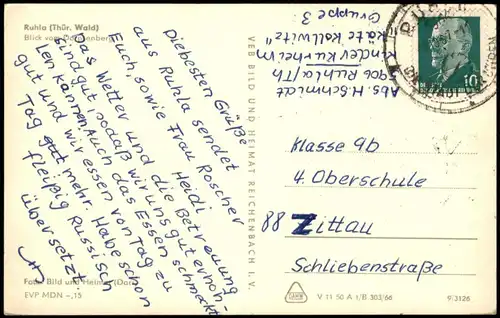 Ruhla (Thür. Wald)
Blick vom Dornsenberg
Abs. H. Schmidt
900 Ruhla/Th
Kinderkurheim
"Käte Kollwitz"
Gruppe 3
10
VEB BILD UND HEIMAT REICHENBACH I. V.
Diebesten Grüße
aus Ruhla sendet
Euch, sowie Frau Roscher
Heidi
Das Wetter und die Betreuung
sind gut, sodaß wir uns gut erhoh-
len kannen. Auch das Essen schmeckt
gut und wir essen von Tag zu
Tag mehr. Habe schon
fleißig Russisch
übersetzt.
Klasse 9b
4. Oberschule
88 Zittau
Schliebenstraße
Foto: Bild und Heimat
EVP MDN -,15
V 11 50 A 1/B 303/66
9/3126